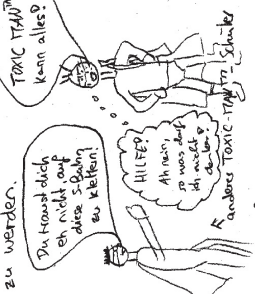 zu werden.
Du traust dich
eh nicht, auf
diese S-Bahn
zu klettern!
TOXIC MAN™
kann alles!
HILFE!
Ah nein,
so was darf
ich nicht
denken!
anderes TOXIC-MAN™-Schüler